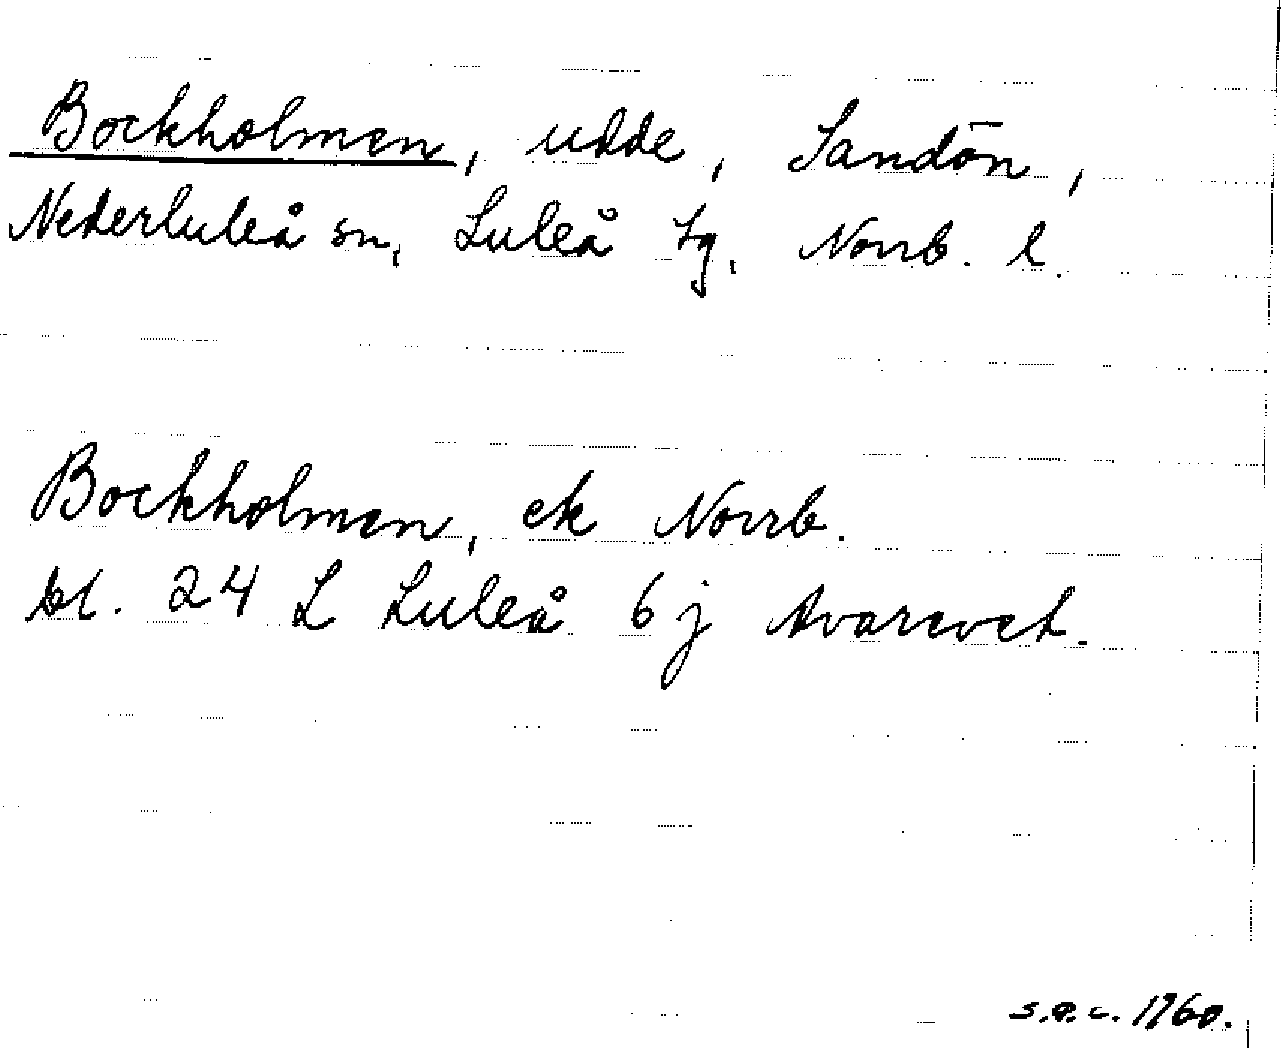 Bockholmen, udde, Sandön,
Nederluleå sn, Luleå tg, Norrb. l.
Bockholmen, ek Norrb.
bl. 24 L Luleå 6 j Avarevet.
s.e.c. 1960.